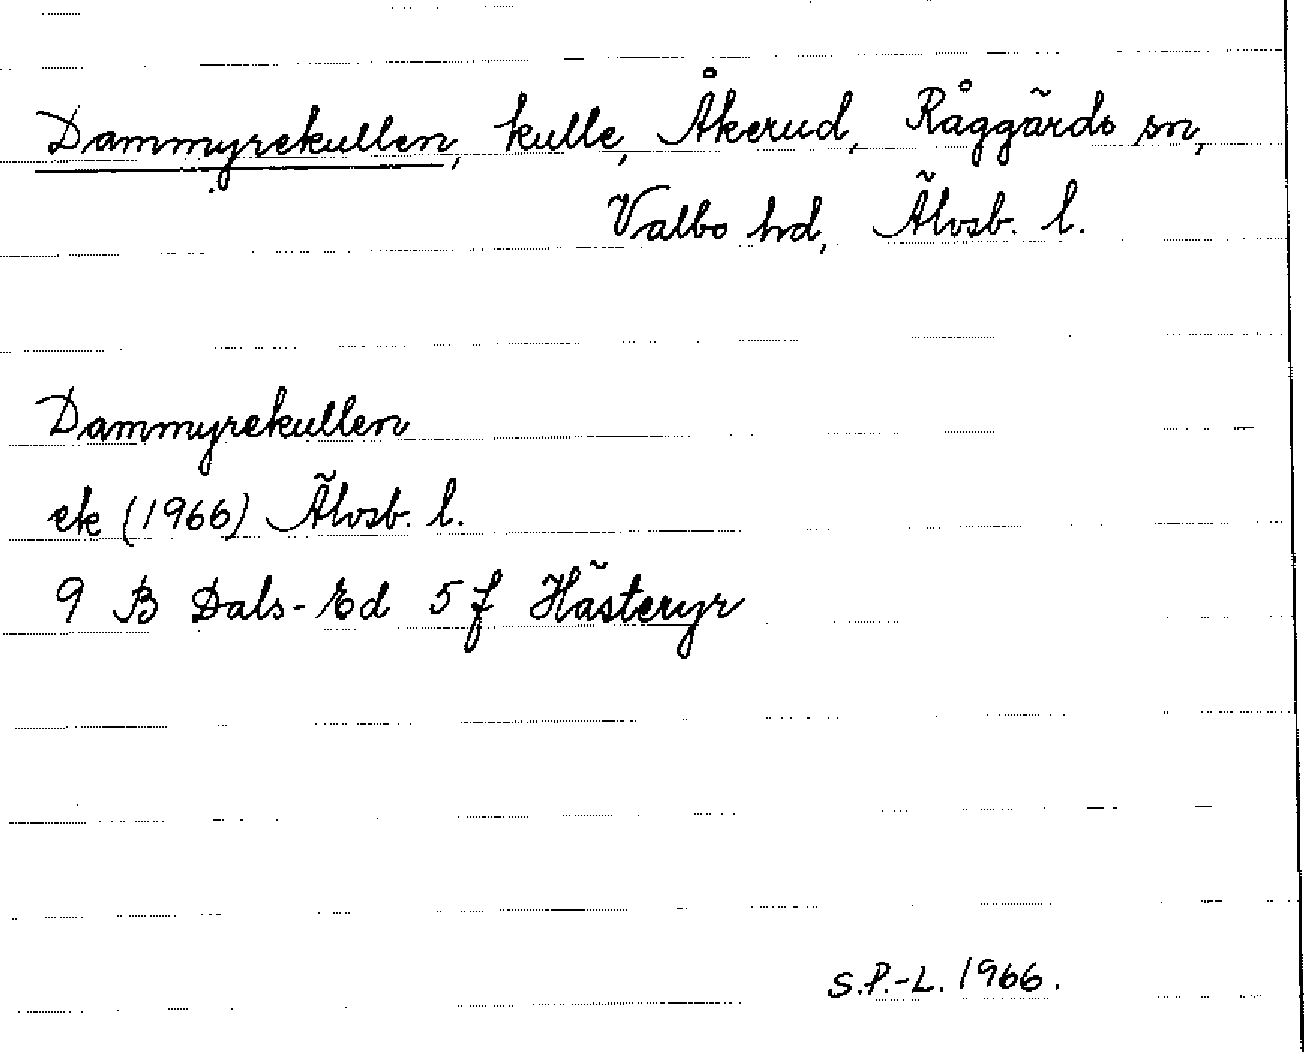 Dammyrekullen, kulle, Åkerud, Råggärds sn,
Valbo hd, Älvsb. l.
Dammyrekullen
ek (1966) Älvsb. l.
9 B Dals-Ed 5 f Hästeryr
S.P.-L. 1966.